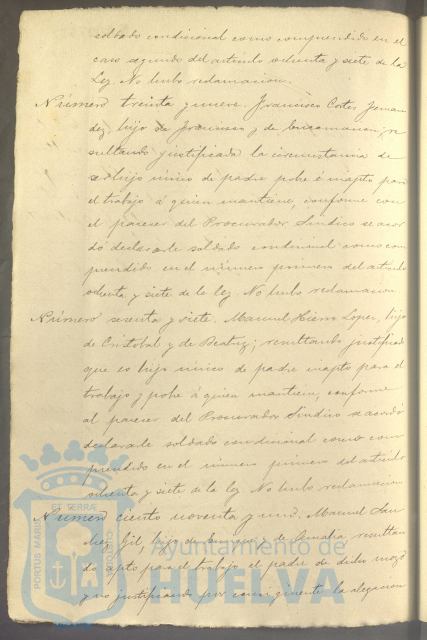 soldado condicional como comprendido en el
caso segundo del artículo ochenta y siete de la
Ley. No hubo reclamacion.
Número treinta y nueve. Francisco Cortes Fernan
dez, hijo de Francisco y de re
sultando justificada la circunstancia de
ser hijo único de padre pobre é inapto para
el trabajo á quien mantiene, conforme con
el parecer del Procurador Sindico se acor
dó declararle soldado condicional como com
prendido en el número primero del artículo
ochenta y siete de la ley. No hubo reclamacion
Número sesenta y siete. Manuel Hierro Lopez, hijo
de Cristobal y de Beatriz; resultando justificado
que es hijo único de padre inapto para el
trabajo y pobre á quien mantiene, conforme
al parecer del Procurador Sindico se acordó
declararle soldado condicional como com
prendido en el número primero del artículo
ochenta y siete de la ley. No hubo reclamacion
Número ciento noventa y uno. Manuel San
chez Gil hijo de Enrique y de resultan
do apto para el trabajo el padre de dicho mozo
y no justificando por consiguiente la alegacion
PORTUS MARIS
ET TERRÆ
Ayuntamiento de
HUELVA